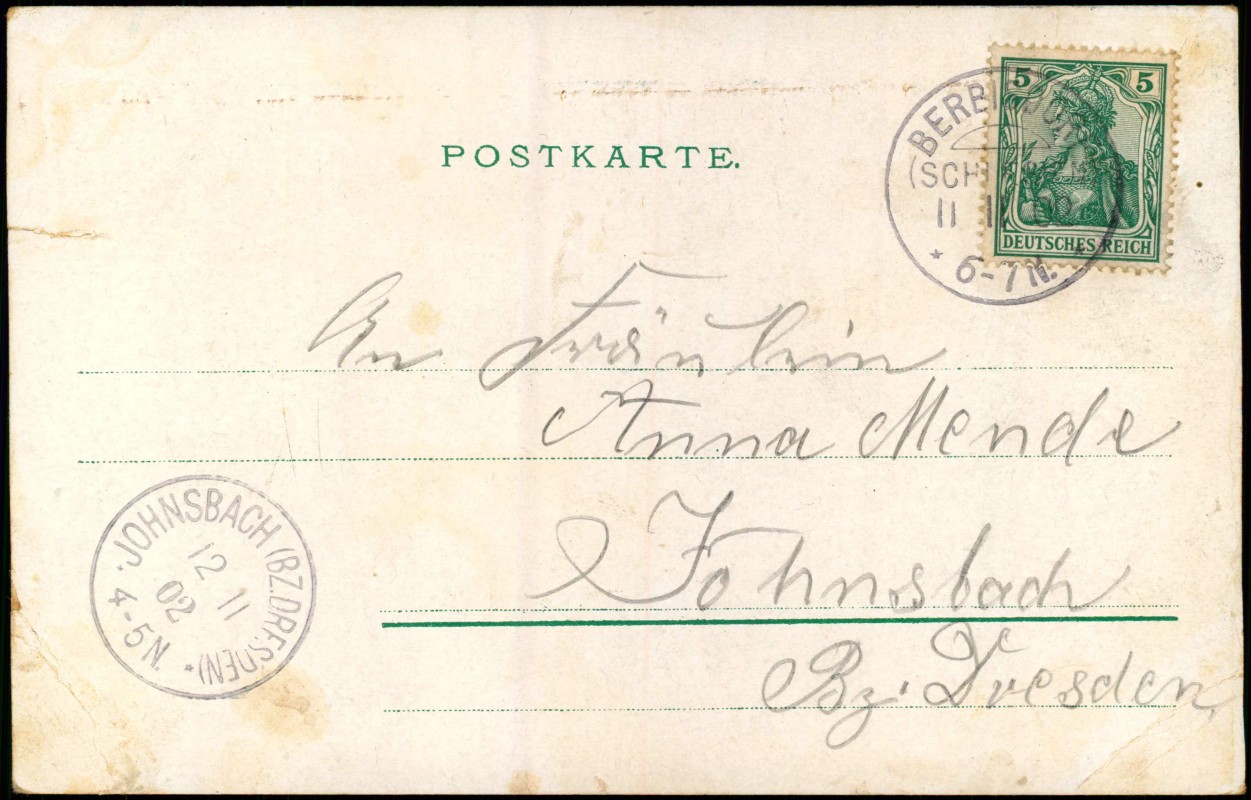 POSTKARTE.
5 5
DEUTSCHES REICH
(SCH
11 11
* 6-7 N. *
An Fräulein
Anna Mende
Johnsbach
Bz. Dresden
JOHNSBACH (BZ.DRESDEN)
12 11
02
* 4-5N. *